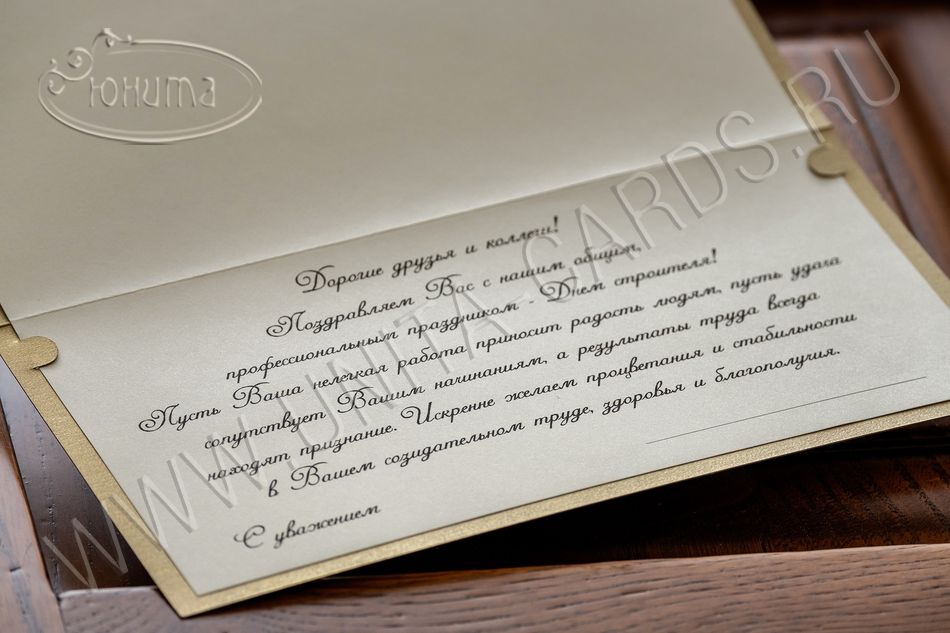 Юнита
WWW.UNITA-CARDS.RU
Дорогие друзья и коллеги!
Поздравляем Вас с нашим общим,
профессиональным праздником - Днем строителя!
Пусть Ваша нелегкая работа приносит радость людям, пусть удача
сопутствует Вашим начинаниям, а результаты труда всегда
находят признание. Искренне желаем процветания и стабильности
в Вашем созидательном труде, здоровья и благополучия.
С уважением